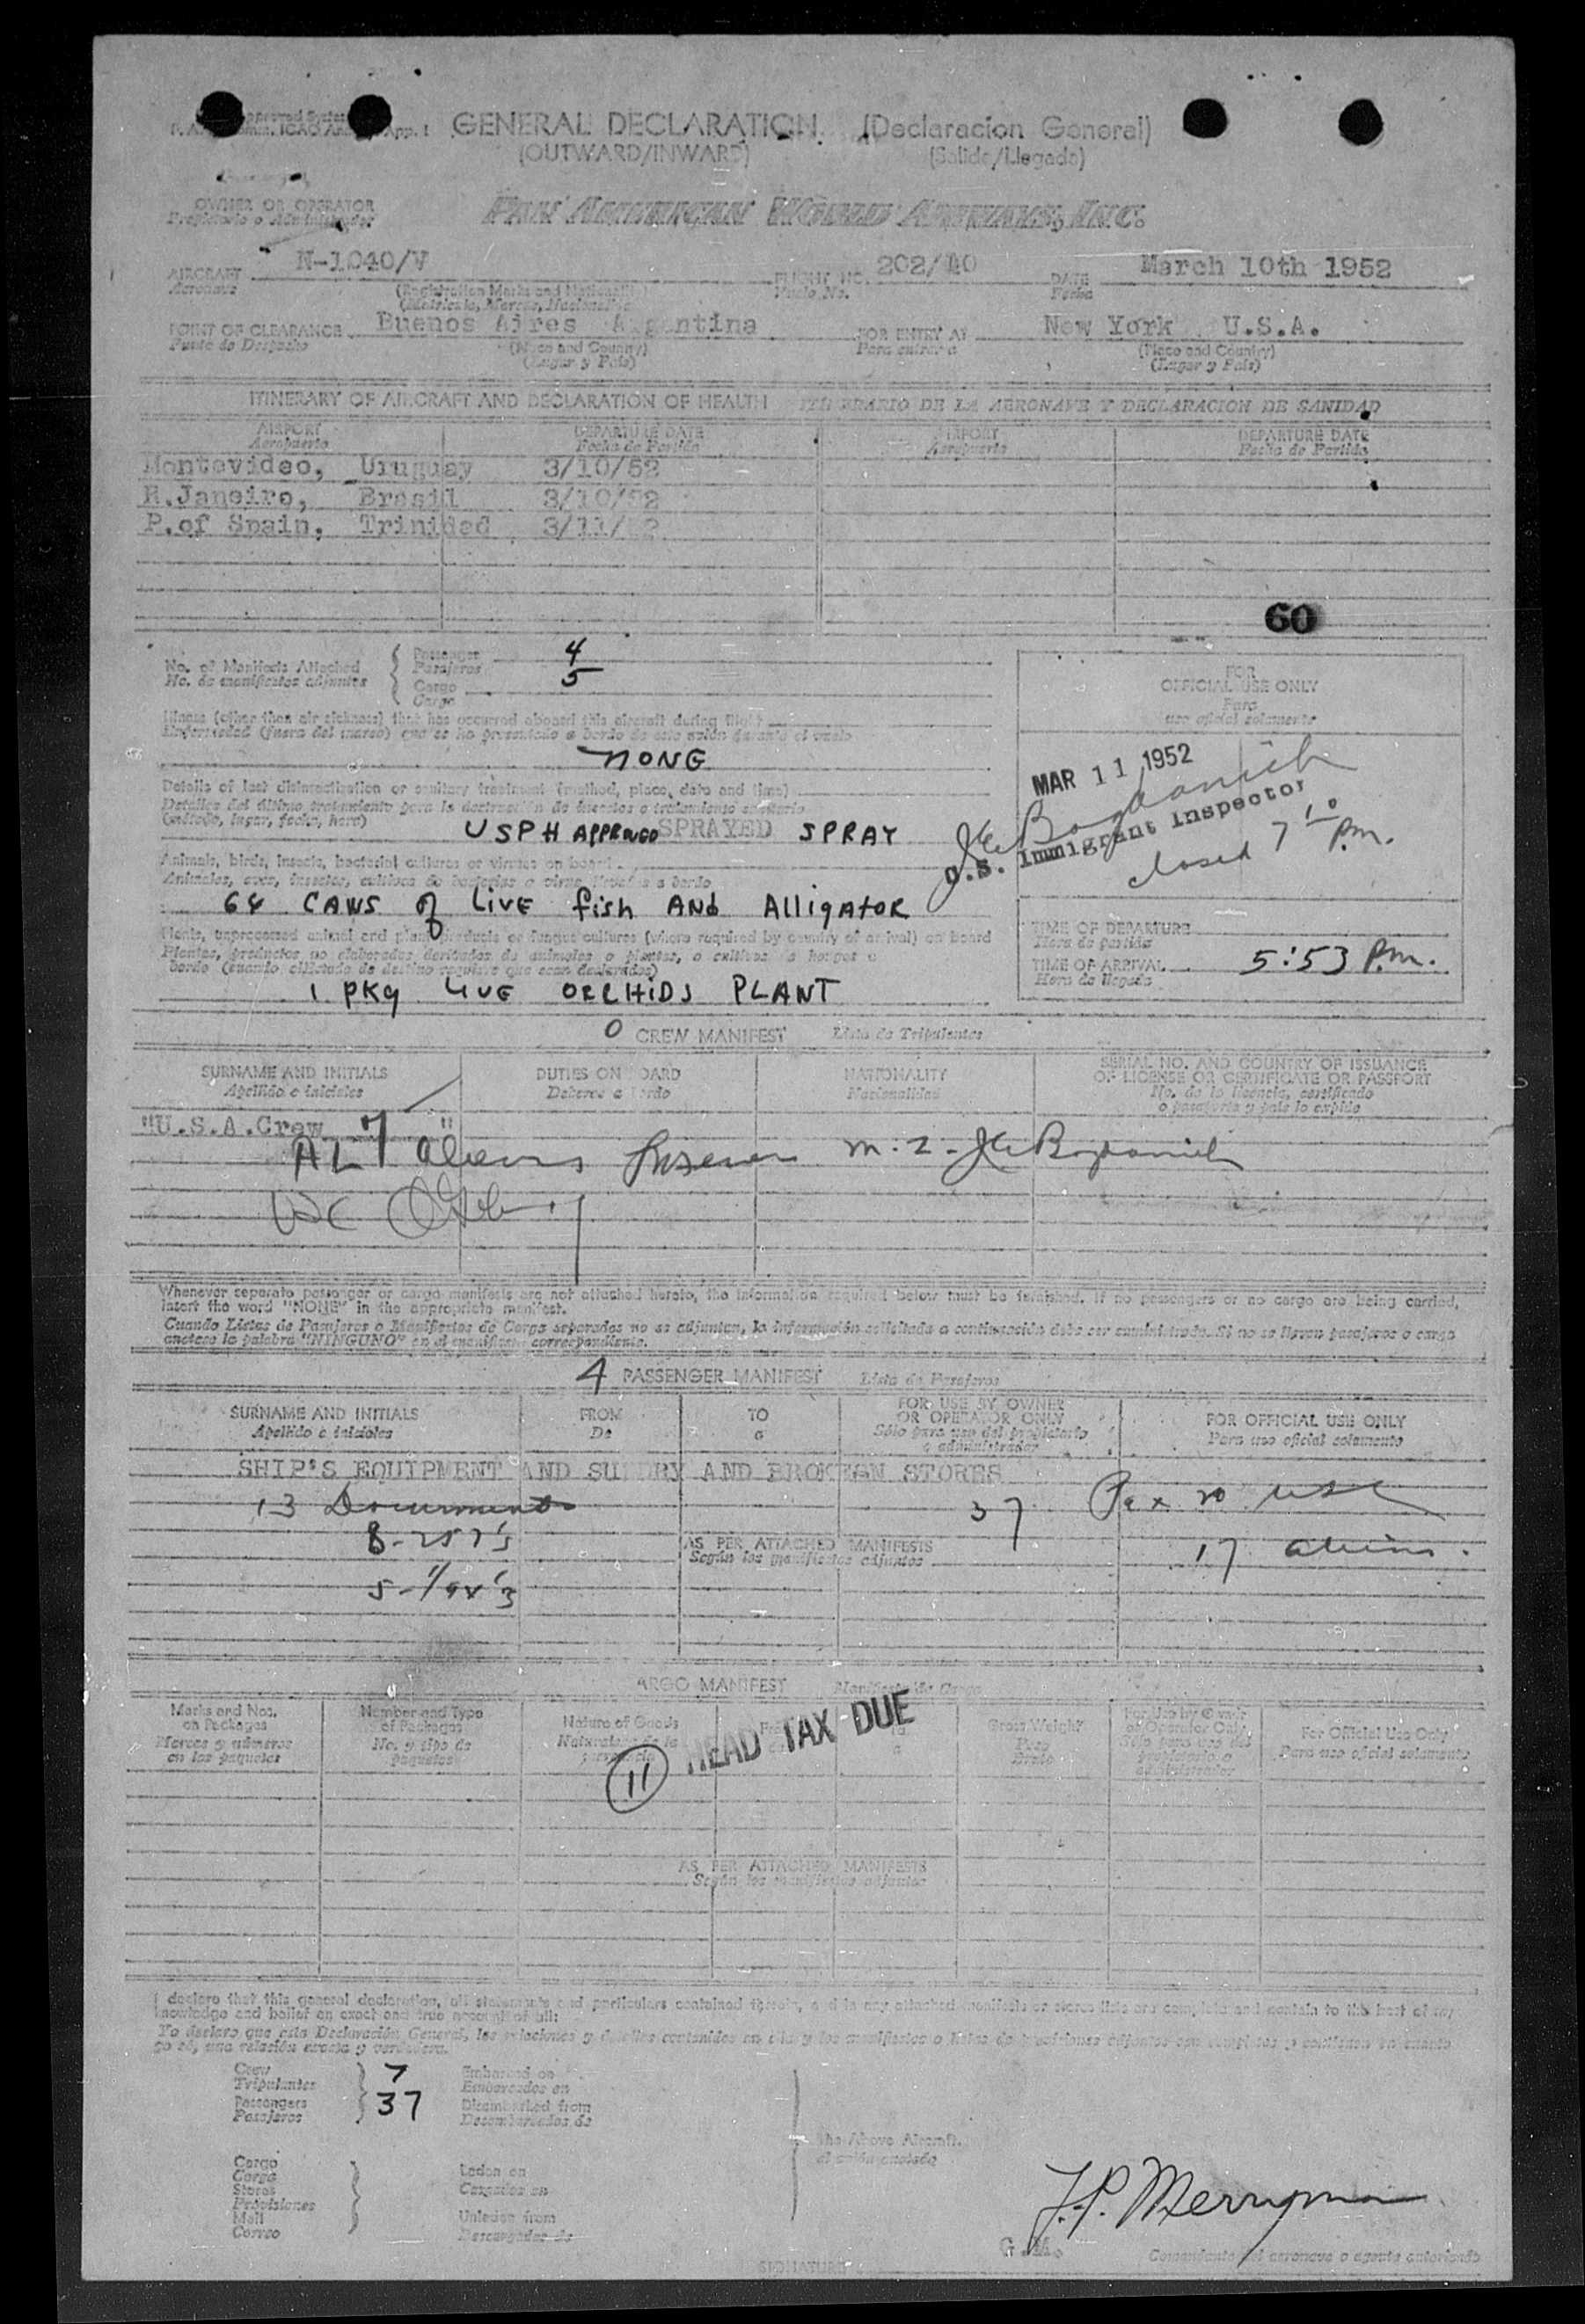 GENERAL DECLARATION (Declaracion General)
(OUTWARD/INWARD) (Salida/Llegada)
OWNER OR OPERATOR
Propietario o Administrador
PAN AMERICAN WORLD AIRWAYS, INC.
AIRCRAFT N-1040/V FLIGHT NO. 202/10 DATE March 10th 1952
Aeronave (Registration Marks and Nationality) Vuelo No. Fecha
(Matricula, Marcas, Nacionalidad)
POINT OF CLEARANCE Buenos Aires Argentina FOR ENTRY AT New York U.S.A.
Punto de Despacho (Place and Country) Para entrar a (Place and Country)
(Lugar y País) (Lugar y País)
ITINERARY OF AIRCRAFT AND DECLARATION OF HEALTH ITINERARIO DE LA AERONAVE Y DECLARACION DE SANIDAD
AIRPORT DEPARTURE DATE AIRPORT DEPARTURE DATE
Aeropuerto Fecha de Partida Aeropuerto Fecha de Partida
Montevideo, Uruguay 3/10/52
R.Janeiro, Brasil 3/10/52
P.of Spain, Trinidad 3/11/52
60
No. of Manifests Attached Passenger 4
No. de manifiestos adjuntos Pasajeros
Cargo 5
Carga
FOR
OFFICIAL USE ONLY
Para
uso oficial solamente
Illness (other than air sickness) that has occurred aboard this aircraft during flight
Enfermedad (fuera del mareo) que se ha presentado a bordo de este avión durante el vuelo
NONE
MAR 11 1952
Details of last disinsectization or sanitary treatment (method, place, date and time)
Detalles del último tratamiento para la destrucción de insectos o tratamiento sanitario
(método, lugar, fecha, hora)
USPH APPROVED SPRAYED SPRAY
JC Bogdanich
U.S. Immigrant Inspector
closed 7 10 P.m.
Animals, birds, insects, bacterial cultures or viruses on board
Animales, aves, insectos, cultivos de bacterias o virus llevados a bordo
64 CANS of LIVE fish AND AlligatOR
Plants, unprocessed animal and plant products or fungus cultures (where required by country of arrival) on board
Plantas, productos no elaborados derivados de animales o plantas, o cultivos de hongos a
bordo (cuando el Estado de destino requiere que sean declarados)
1 PKg LIVE ORCHIDS PLANT
TIME OF DEPARTURE
Hora de partida
TIME OF ARRIVAL 5:53 P.m.
Hora de llegada
0 CREW MANIFEST Lista de Tripulantes
SURNAME AND INITIALS DUTIES ON BOARD NATIONALITY SERIAL NO. AND COUNTRY OF ISSUANCE
Apellido e iniciales Deberes a bordo Nacionalidad OF LICENSE OR CERTIFICATE OR PASSPORT
No. de la licencia, certificado
o pasaporte y país lo expide
"U.S.A.Crew 7 "
Whenever separate passenger or cargo manifests are not attached hereto, the information required below must be furnished. If no passengers or no cargo are being carried,
insert the word "NONE" in the appropriate manifest.
Cuando Listas de Pasajeros o Manifiestos de Carga separados no se adjuntan, la información solicitada a continuación debe ser suministrada. Si no se llevan pasajeros o carga
anótese la palabra "NINGUNO" en el manifiesto correspondiente.
4 PASSENGER MANIFEST Lista de Pasajeros
SURNAME AND INITIALS FROM TO FOR USE BY OWNER FOR OFFICIAL USE ONLY
Apellido e iniciales De a OR OPERATOR ONLY Para uso oficial solamente
Sólo para uso del propietario
o administrador
SHIP'S EQUIPMENT AND SUNDRY AND BROKEN STORES
13 Documents 37 Pax to USA
8-257's
AS PER ATTACHED MANIFESTS
Según los manifiestos adjuntos
17 aliens.
CARGO MANIFEST Manifiesto de Carga
Marks and Nos. Number and Type Nature of Goods Gross Weight For Use by Owner For Official Use Only
on Packages of Packages Naturaleza de la Peso or Operator Only Para uso oficial solamente
Marcas y números No. y tipo de Bruto Sólo para uso del
en los paquetes paquetes propietario o
administrador
11 HEAD TAX DUE
AS PER ATTACHED MANIFESTS
Según los manifiestos adjuntos
I declare that this general declaration, all statements and particulars contained therein, and in any attached manifests or stores lists are complete and contain to the best of my
knowledge and belief an exact and true account of all:
Crew 7 Embarked on
Tripulantes Embarcados en
Passengers 37 Disembarked from
Pasajeros Desembarcados de
the Above Aircraft.
al avión anotado
Cargo Laden on
Carga Cargados en
Stores
Provisiones
Mail Unladen from
Correo Descargados de
J.P. Merryman
SIGNATURE
Comandante del aeronave o agente autorizado